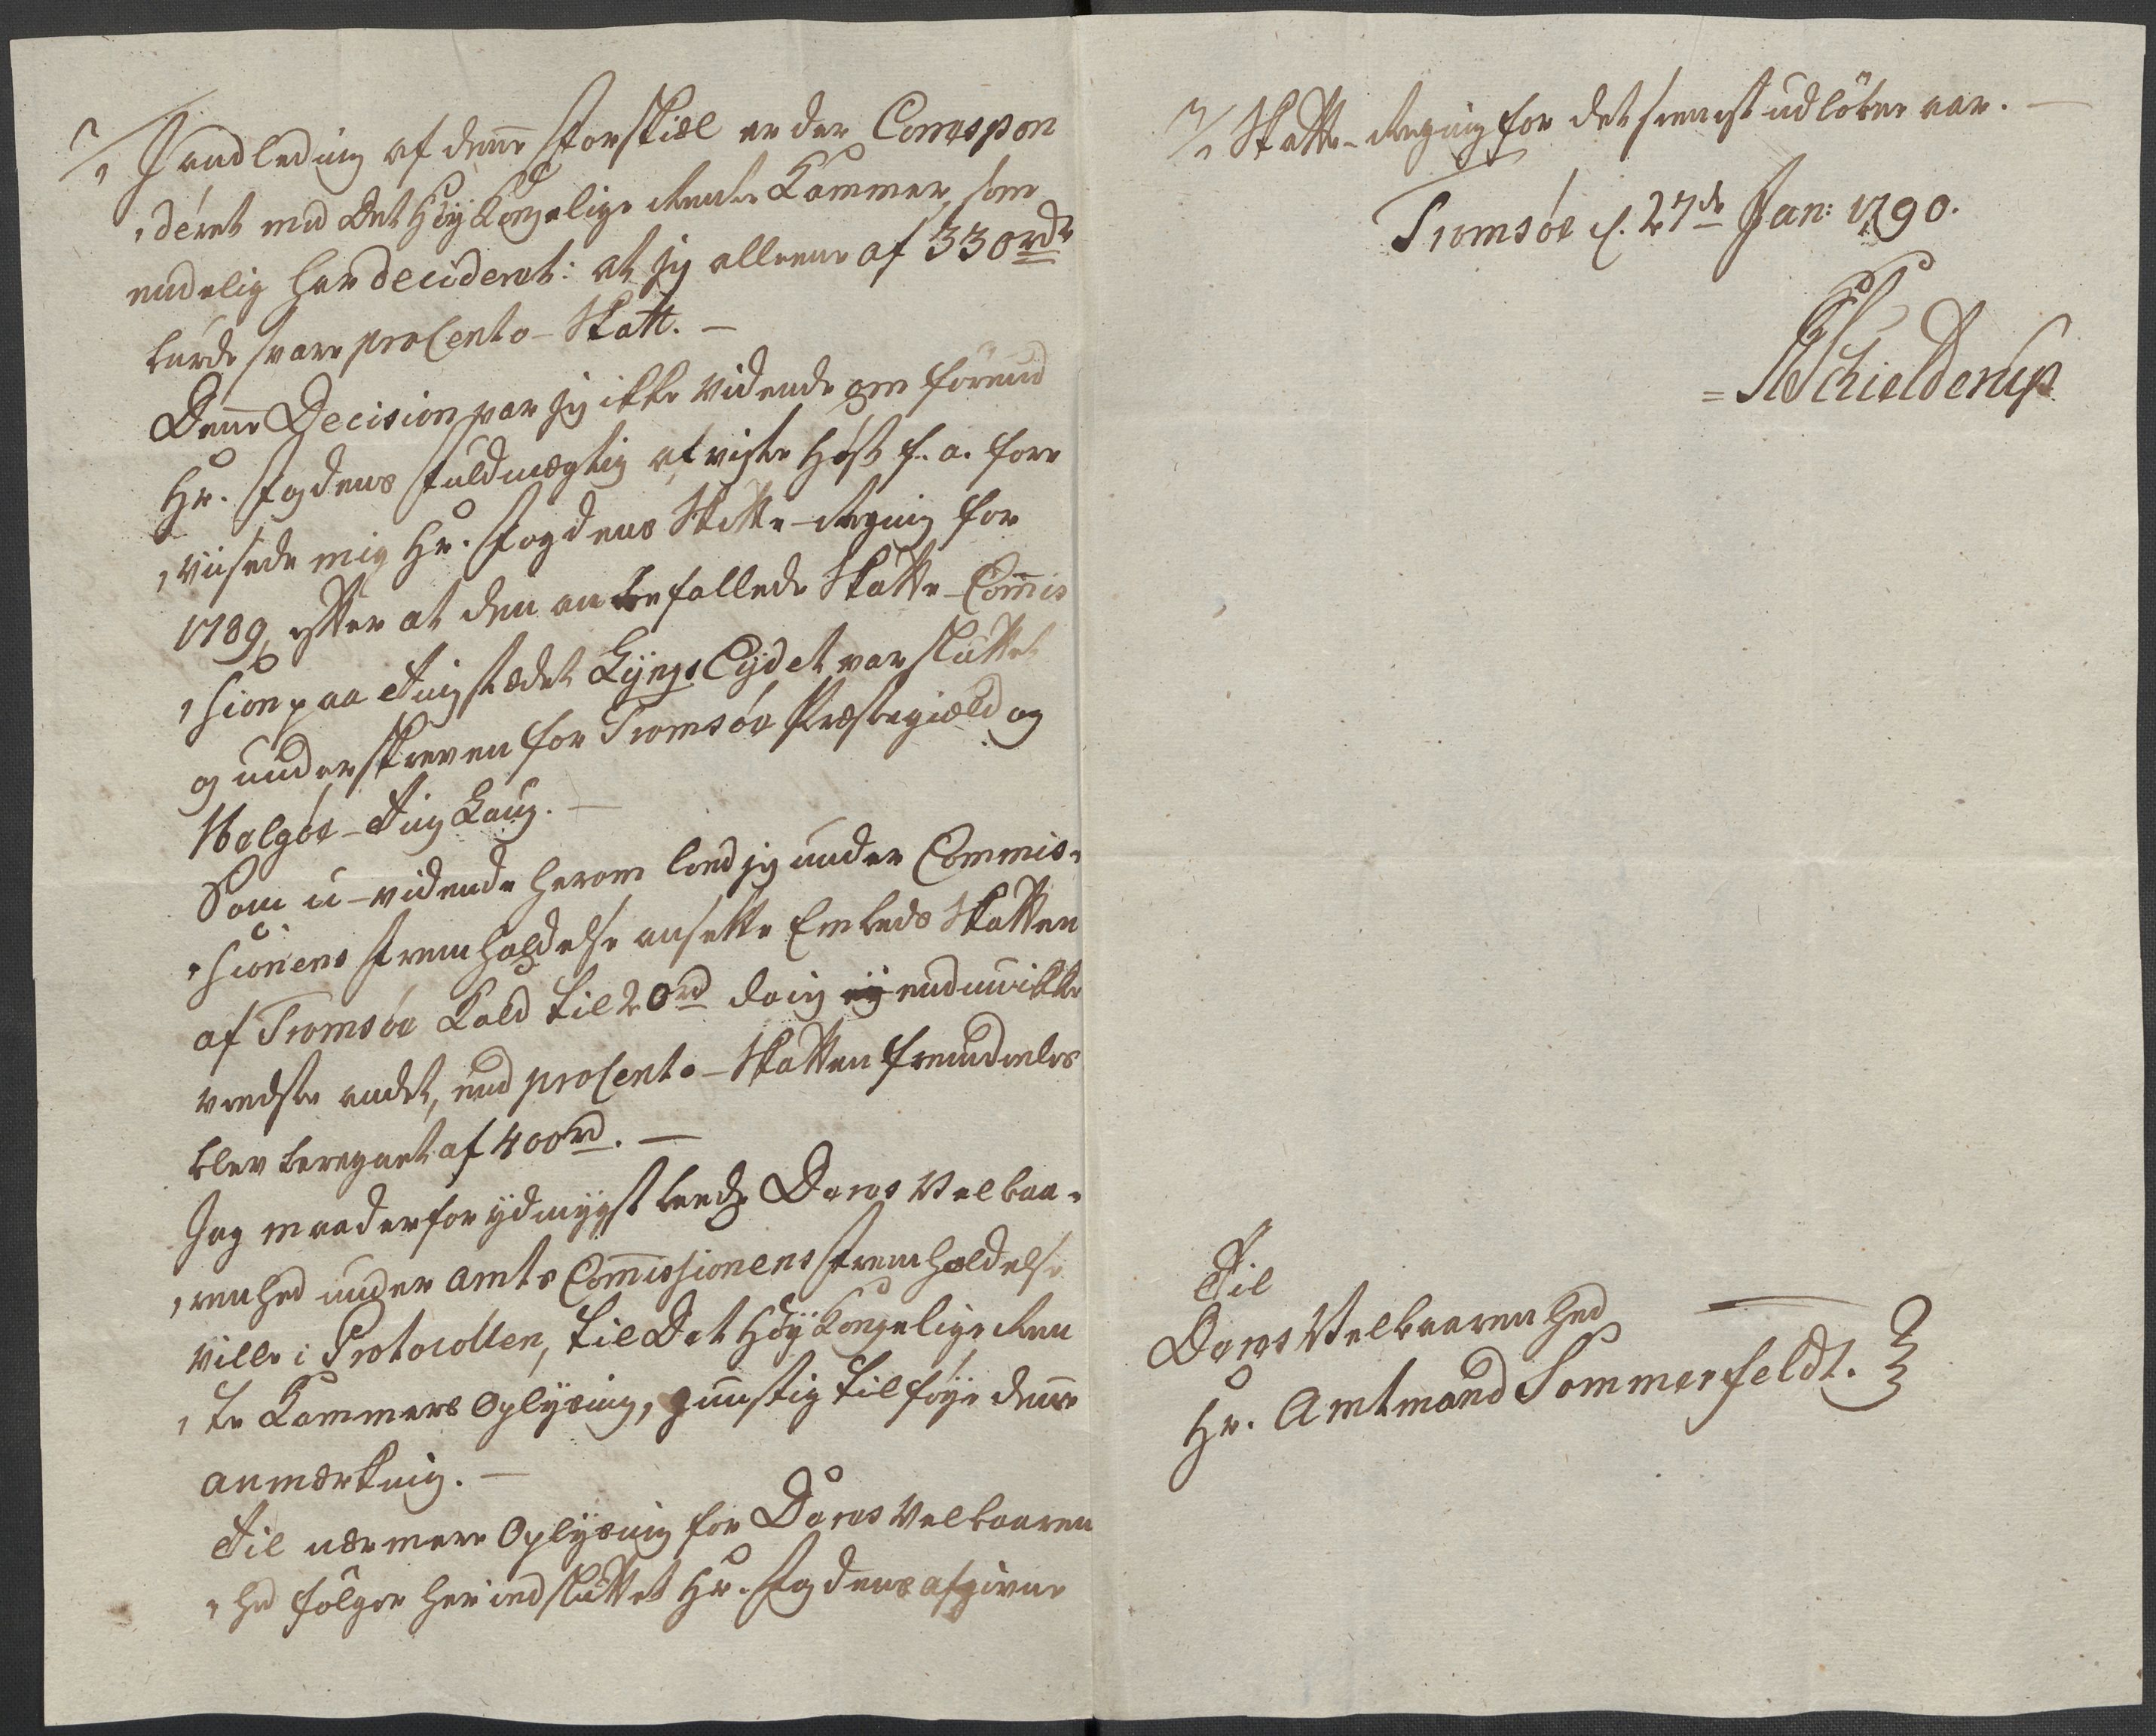 I andledning af denne Forskiæl er der Correspon
deret med Det Høy Kongelige Rente Kammer, som
endelig har decideret: at jeg alleene af 330 rdr
burde svare proCento-Skatt. —
Denne Decision var jeg ikke vidende om förend
Hr. Fogdens Fuldmægtig af viste Høst f. a. fore
viisede mig Hr. Fogdens Skatte-Regning for
1789, efter at den anbefallede Skatte-Commis
sion paa Tingstædet Lyngs Eydet var sluttet
og underskreven for Tromsöe Præstegiæld og
Helgöe-Ting Laug. —
Som u-vidende herom loed jeg under Commis-
sionens Fremholdelse ansætte Embeds Skatten
af Tromsöe Kald til 20 rd da jeg endnu ikke
vidste andet, end proCento-Skatten fremdeeles
blev beregnet af 400 rd. —
Jeg maa derfor ydmygst beede Deres Velbaa-
renhed under Amts Commissionens Fremholdelse
ville i Protocollen, til Det Høy Kongelige Ren
te Kammers Oplysning, gunstig tilføye denne
Anmærkning. —
Til nærmere Oplysning for Deres Velbaaren
hed fölger her indsluttet Hr. Fogdens afgivne
Skatte-Regning for det seneste udløbne aar. —
Tromsöe d. 27de Jan: 1790.
Schielderup
Til
Deres Velbaarenhed
Hr. Amtmand Sommerfeldt.